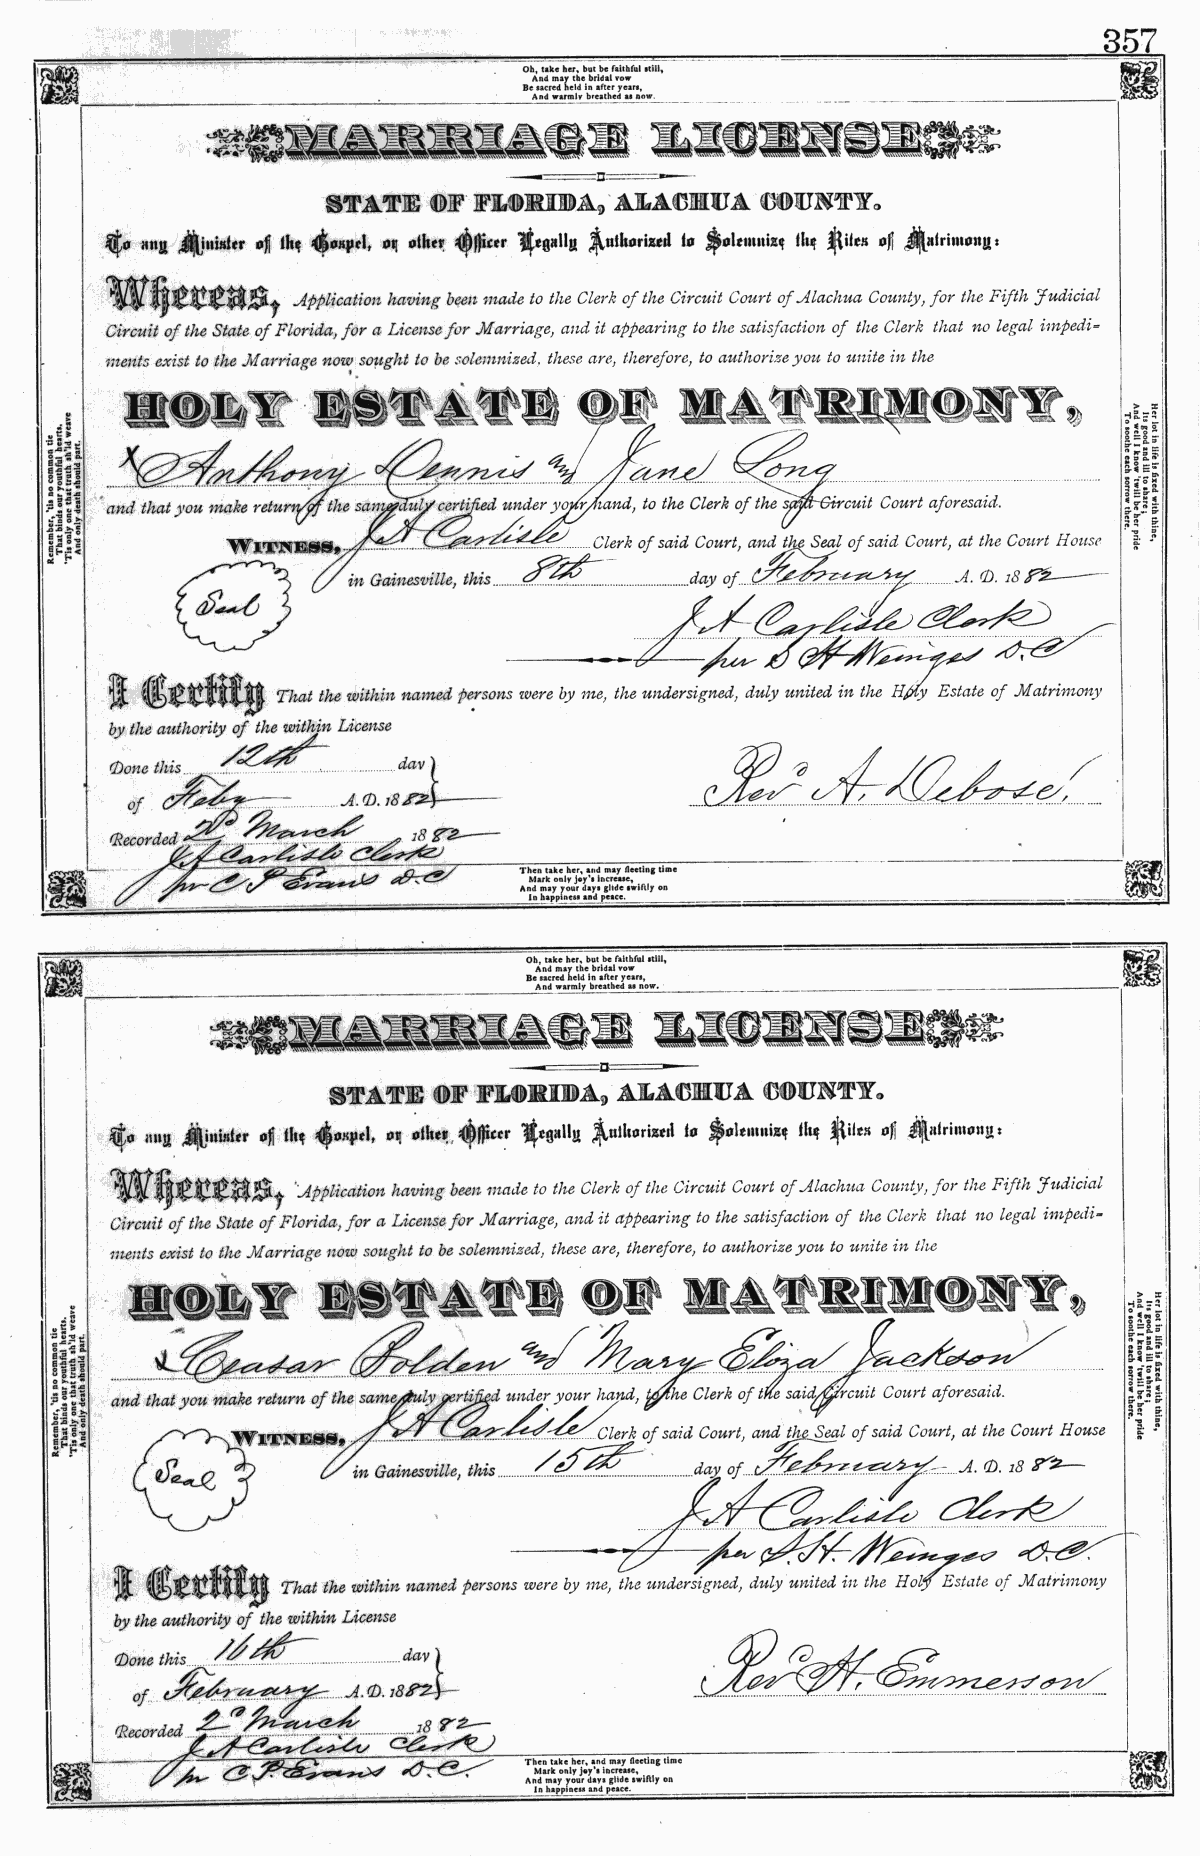 357
Oh, take her, but be faithful still,
And may the bridal vow
Be sacred held in after years,
And warmly breathed as now.
MARRIAGE LICENSE
STATE OF FLORIDA, ALACHUA COUNTY.
To any Minister of the Gospel, or other Officer Legally Authorized to Solemnize the Rites of Matrimony:
Whereas, Application having been made to the Clerk of the Circuit Court of Alachua County, for the Fifth Judicial
Circuit of the State of Florida, for a License for Marriage, and it appearing to the satisfaction of the Clerk that no legal impedi-
ments exist to the Marriage now sought to be solemnized, these are, therefore, to authorize you to unite in the
HOLY ESTATE OF MATRIMONY,
x Anthony Dennis and Jane Long
and that you make return of the same duly certified under your hand, to the Clerk of the said Circuit Court aforesaid.
WITNESS, J A Carlisle Clerk of said Court, and the Seal of said Court, at the Court House
Seal
in Gainesville, this 8th day of February A. D. 1882
J A Carlisle Clerk
per S H Weinges D.C
I Certify That the within named persons were by me, the undersigned, duly united in the Holy Estate of Matrimony
by the authority of the within License
Done this 12th day
of Feby A.D. 1882
Rev A. Debose
Recorded 2d March 1882
J A Carlisle Clerk
pr C P Evans D.C
Remember, 'tis no common tie
That binds our youthful hearts,
'Tis only one that truth sh'ld weave
And only death should part.
Her lot in life is fixed with thine,
Its good and ill to share;
And well I know 'twill be her pride
To soothe each sorrow there.
Then take her, and may fleeting time
Mark only joy's increase,
And may your days glide swiftly on
In happiness and peace.
Oh, take her, but be faithful still,
And may the bridal vow
Be sacred held in after years,
And warmly breathed as now.
MARRIAGE LICENSE
STATE OF FLORIDA, ALACHUA COUNTY.
To any Minister of the Gospel, or other Officer Legally Authorized to Solemnize the Rites of Matrimony:
Whereas, Application having been made to the Clerk of the Circuit Court of Alachua County, for the Fifth Judicial
Circuit of the State of Florida, for a License for Marriage, and it appearing to the satisfaction of the Clerk that no legal impedi-
ments exist to the Marriage now sought to be solemnized, these are, therefore, to authorize you to unite in the
HOLY ESTATE OF MATRIMONY,
x Ceasar Bolden and Mary Eliza Jackson
and that you make return of the same duly certified under your hand, to the Clerk of the said Circuit Court aforesaid.
WITNESS, J A Carlisle Clerk of said Court, and the Seal of said Court, at the Court House
Seal
in Gainesville, this 15th day of February A. D. 1882
J A Carlisle Clerk
per S. H. Weinges D.C.
I Certify That the within named persons were by me, the undersigned, duly united in the Holy Estate of Matrimony
by the authority of the within License
Done this 16th day
of February A.D. 1882
Rev H. Emmerson
Recorded 2d March 1882
J A Carlisle Clerk
pr C. P. Evans D.C.
Remember, 'tis no common tie
That binds our youthful hearts,
'Tis only one that truth sh'ld weave
And only death should part.
Her lot in life is fixed with thine,
Its good and ill to share;
And well I know 'twill be her pride
To soothe each sorrow there.
Then take her, and may fleeting time
Mark only joy's increase,
And may your days glide swiftly on
In happiness and peace.